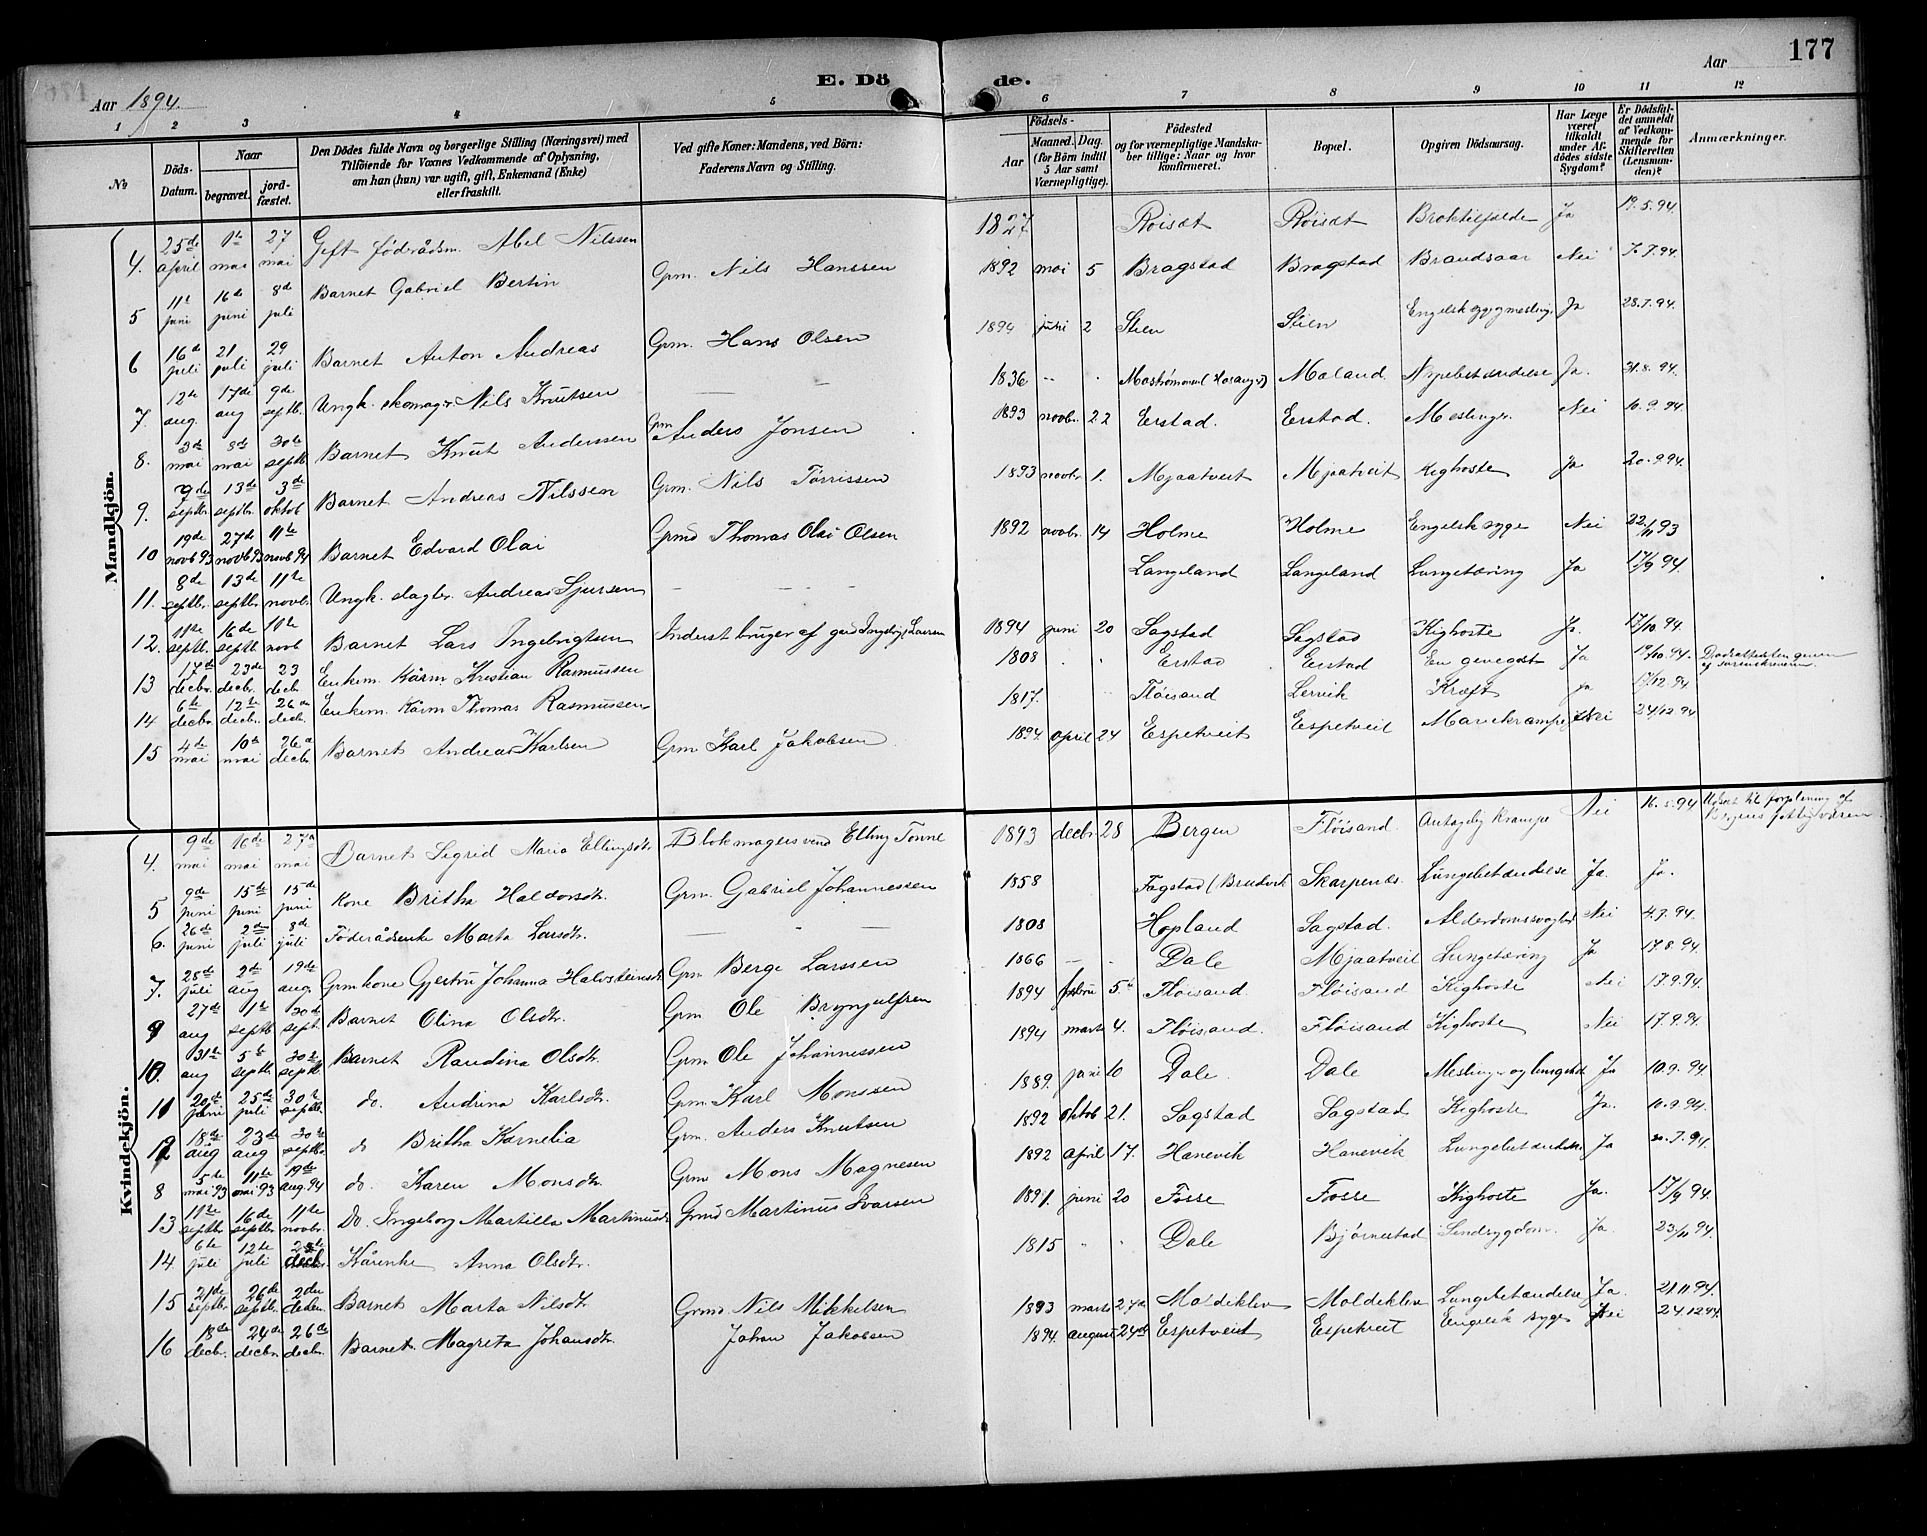 177
E. Döde.
Aar 1894.
Aar
1 2 3 4 5 6 7 8 9 10 11 12
№
Döds-Datum.
Naar
begravet.
jordfæstet.
Den Dödes fulde Navn og borgerlige Stilling (Næringsvei) med Tilföiende for Voxnes Vedkommende af Oplysning, om han (hun) var ugift, gift, Enkemand (Enke) eller fraskilt.
Ved gifte Koner: Mandens, ved Börn: Faderens Navn og Stilling.
Födsels-
Aar
Maaned. Dag.
(for Börn indtil 5 Aar samt Værnepligtige).
Födested og for værnepligtige Mandskaber tillige: Naar og hvor konfirmeret.
Bopæl.
Opgiven Dödsaarsag.
Har Læge været tilkaldt under Afdödes sidste Sygdom?
Er Dödsfaldet anmeldt af Vedkommende for Skifteretten (Lensmanden)?
Anmærkninger.
Mandkjön.
4. 25de april 1te mai 27 mai Gift föderådsm. Abel Nilssen 1827 Röisæt Röisæt Broktilfælde Ja 19.5.94.
5 11te juni 16de juni 8de juli Barnet Gabriel Bertin Grm. Nils Hanssen 1892 mai 5 Bragstad Bragstad Brandsaar Nei 7.7.94.
6 16de juli 21 juli 29 juli Barnet Anton Andreas Grm. Hans Olsen 1894 juni 2 Stien Stien Ja 28.7.94.
7. 12te aug. 17de aug 9de septb. Ungk. skomager Nils Knutsen — 1836 Moland Ja. 31.8.94.
8. 3de mai 8de mai 30te septb. Barnet Knut Anderssen Grm. Anders Jonsen 1893 novbr. 22 Eerstad. Eerstad. Meslinger. Nei 10.9.94.
9. 7de septbr. 13de septbr. 3de oktob Barnet Andreas Nilssen Grm. Nils Törrissen 1893 novbr. 1. Mjaatveit Mjaatveit Kighoste Ja 20.9.94.
10 19de novb 93 27de novb 93 11te novb 94 Barnet Edvard Olai Grmd Thomas Olai Olsen 1892 novbr. 14 Holme Holme Engelsk syge Nei 22/11 93
11. 8de septbr. 13de septbr. 11te novbr. Ungk. slagter Andreas Sjursen — — Langeland Langeland Lungetæring Ja 17/9 94.
12. 11te septb. 16de septb. 11te novb Barnet Lars Ingebrigtsen Inderst bruger af Larsen 1894 juni 20 Sagstad Sagstad Kighoste Ja. 17/10 94.
13 17de decbr. 23de decbr. 23 decbr Enkem. Kårm Kristian Rasmussen 1808 Eerstad Eerstad Ja 19/10.94.
14 6te decbr. 12te decbr. 26de decb. Enkem. Kårm Thomas Rasmussen 1817. Flöisand Lervik Kræft ja 17/12.94
15 4de mai 10de mai 26de decbr. Barnet Andreas Karlsen Grm Karl Jakobsen 1894. april 24 Espetveit Espetveit Nei 24/12.94
Kvindekjön.
4. 9de mai 16de mai 27de mai Barnet Sigrid Maria Ellingsdtr. Blokmagersvend Elling Tonne 1893 decbr. 28 Bergen Flöisand. Antagelig Krampe Nei 16.5.94
5 9de juni 15de juni 15de juni Kone Britha Haldorsdtr. Grm. Gabriel Johannessen 1858 Fagstad (Bruvik Skarpenæs. Lungebetændelse Ja. Ja.
6. 26de juni 2den juli 8de juli Föderådsenke Marta Larsdtr. — — 1808 Hopland Sagstad. Alderdomssvaghed Nei 4.7.94.
7. 28de juli 2de aug 19de aug. Grm kone Gjertru Johanna Halvsteinsdt. Grm. Berge Larssen 1866 — Dale Mjaatveit Lungetæring Ja 17.8.94.
9 27de aug 1te septb 30te sept. Barnet Olina Olsdtr. Grm Ole Brynjulfsen 1894 febru 5te Flöisand. Flöisand Kighoste Nei 17.9.94.
10. 31te aug 5te septb. 30te septb. Barnet Randina Olsdtr. Grm Ole Johannessen 1894 marts 4. Flöisand. Flöisand Kighoste Nei 17.9.94.
11 20de juni 25de juli 30te septb. do. Andrina Karlsdtr. Grm. Karl Monssen 1889. juni 10 Dale. Dale Ja 10.9.94.
12 18de aug 23de aug 30te septbr. do Britha Kornelia Grm. Anders Knutsen 1892 oktob 21. Sagstad Sagstad Kighoste Ja. 10.9.94.
8 5te mai 93 11te mai 93 19de aug. 94 do. Karen Monsdtr. Grm Mons Magnesen 1892 april 17. Hanevik Hanevik Lungebetændelse Ja 20.7.94.
13 11te septbr 16de septbr. 11te novbr. Do. Ingeborg Martilla Martinusdt Grmd Martinus Ivarsen 1891. juni 20 Fosse Fosse Kighoste Ja. 17/9 94.
14 6te juli 12te juli decb. Kårenke Anna Olsdtr. 1815 Dale Bjørnestad Ja. 23/11 94.
15 21de septbr. 26de septbr. 2den Barnet Marta Nilsdtr. Grmd. Nils Mikkelsen 1893 marts 27de Moldeklev Moldeklev Lungebetændelse Ja. 21.11.94.
16 18de decbr. 24de decbr. 26de decbr. Barnet Magreta Johansdtr. Johan Jakobsen 1894. august 24de Espetveit Espetveit Engelsk syge Nei 24.12.94.